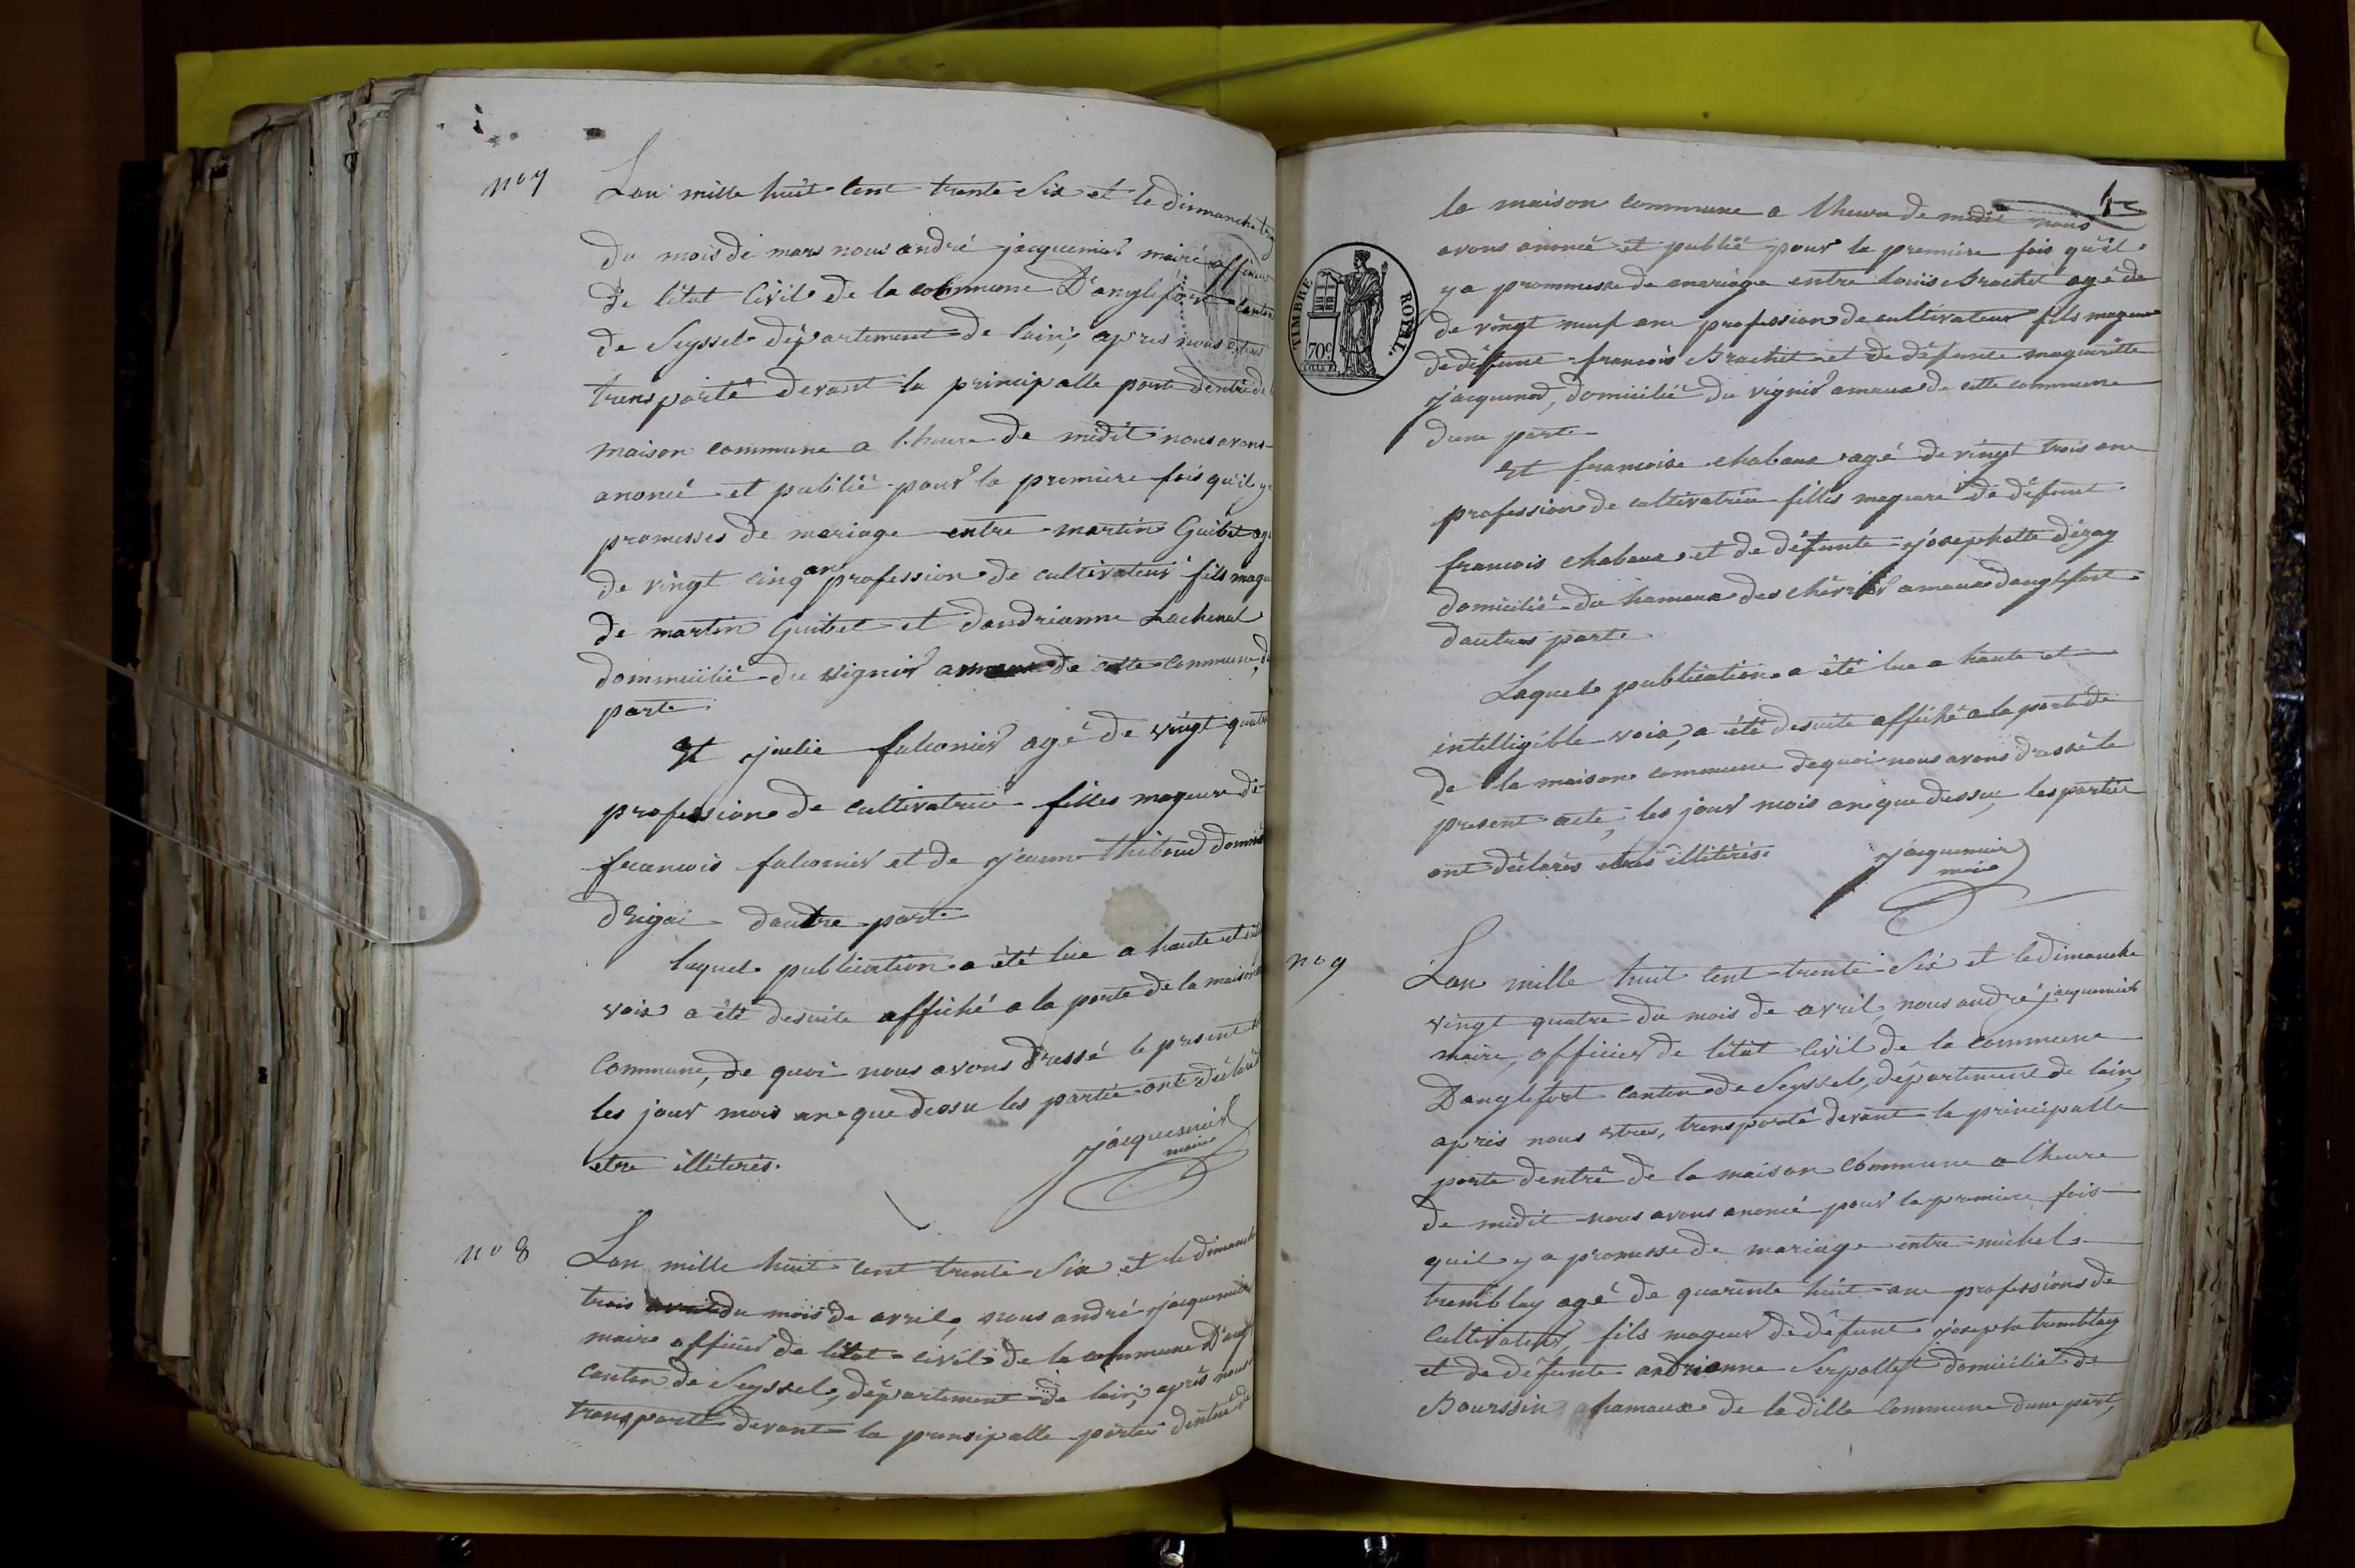 no 7
Lan mille huit cent trente Six et le dimanche
du mois de mars nous andré jacquemier maire officier
de létat Civil de la commune D'anglefort canton
de Seyssel département de lain, apres nous etres
transporté devant la principalle porte dentré de
maison commune a lheure de midit nous avons
anoncé et publié pour la premiere fois qu'il y a
promesses de mariage entre martin Guibet agé
de vingt cinq an profession de cultivateur fils mageur
de martin Guibet et dandrianne Lachenal
dommicilié du vignier amaux de cette commune, d
parte
Et julie falconier agé de vingt quatre
profession de cultivatrice filles mageure de
francois falconier et de jeanne thiboud domicil
d'Eigai dautre parte
laquel publication a été lue a haute et intel
voix a été desuite affiché a la porte de la maison
Commune, de quoi nous avons dressé le present
les jour mois an que dessu les partie ont déclaré
etre illiterés.
jacquemier
maire
no 8
Lan mille huit cent trente Six et le dimanche
trois du mois de avril, nous andré jacquemier
maire officier de létat civil de la commune D'angl
canton de Seyssel, département de lain, après nous
transporté devant la prinsipalle porte dentré de
la maison commune a lheure de midit nous
avons anoncé et publié pour la premiere fois qu'il
y a prommesse de mariage entre louis Brachet agé de
de vingt neuf ane profession de cultivateur fils mageur
de défunt francois Brachet et de défunte marguerite
jacquenod, domicilié du vignier amaux de cette commune
dune parte
Et francoise chabaux agé de vingt trois ane
profession de cultivatrice filles mageure de défunt
francois chabaux et de défunte josephette dézay
domicilié du hamaux des chérrier amaux danglefort
dautres parte
Laquele publication a été lue a haute et
intelligible voix, a été desuite affiché a la porte de
de la maison commune de quoi nous avons dressé le
present acte, les jour mois an que dessu, les partie
ont déclarés etres illitérés.
jacquemier
maire
TIMBRE ROYAL.
70c
no 9
Lan mille huit cent trente Six et le dimanche
vingt quatre du mois de avril, nous andré jacquemier
maire, officier de létat Civil de la commune
Danglefort canton de Seyssel, département de lain,
après nous etres, transporté devant la principalle
porte dentré de la maison commune a lheure
de midit nous avons anoncé pour la premiere fois
quil y a promesse de mariage entre michel
tremblay agé de quarente huit ane profession de
Cultivateur, fils mageur de défunt joseph tremblay
et de défunte andrianne Serpollet domicilié de
Bourssin hamaux de la ditte Commune dune part,